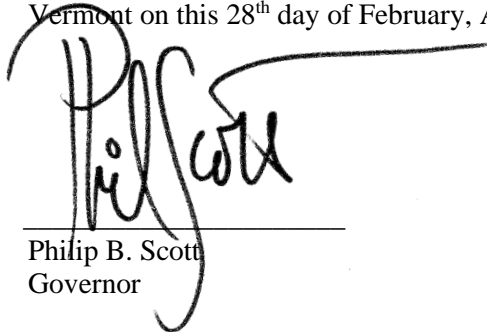 Vermont on this 28th day of February, A
Phil Scott
Philip B. Scott
Governor